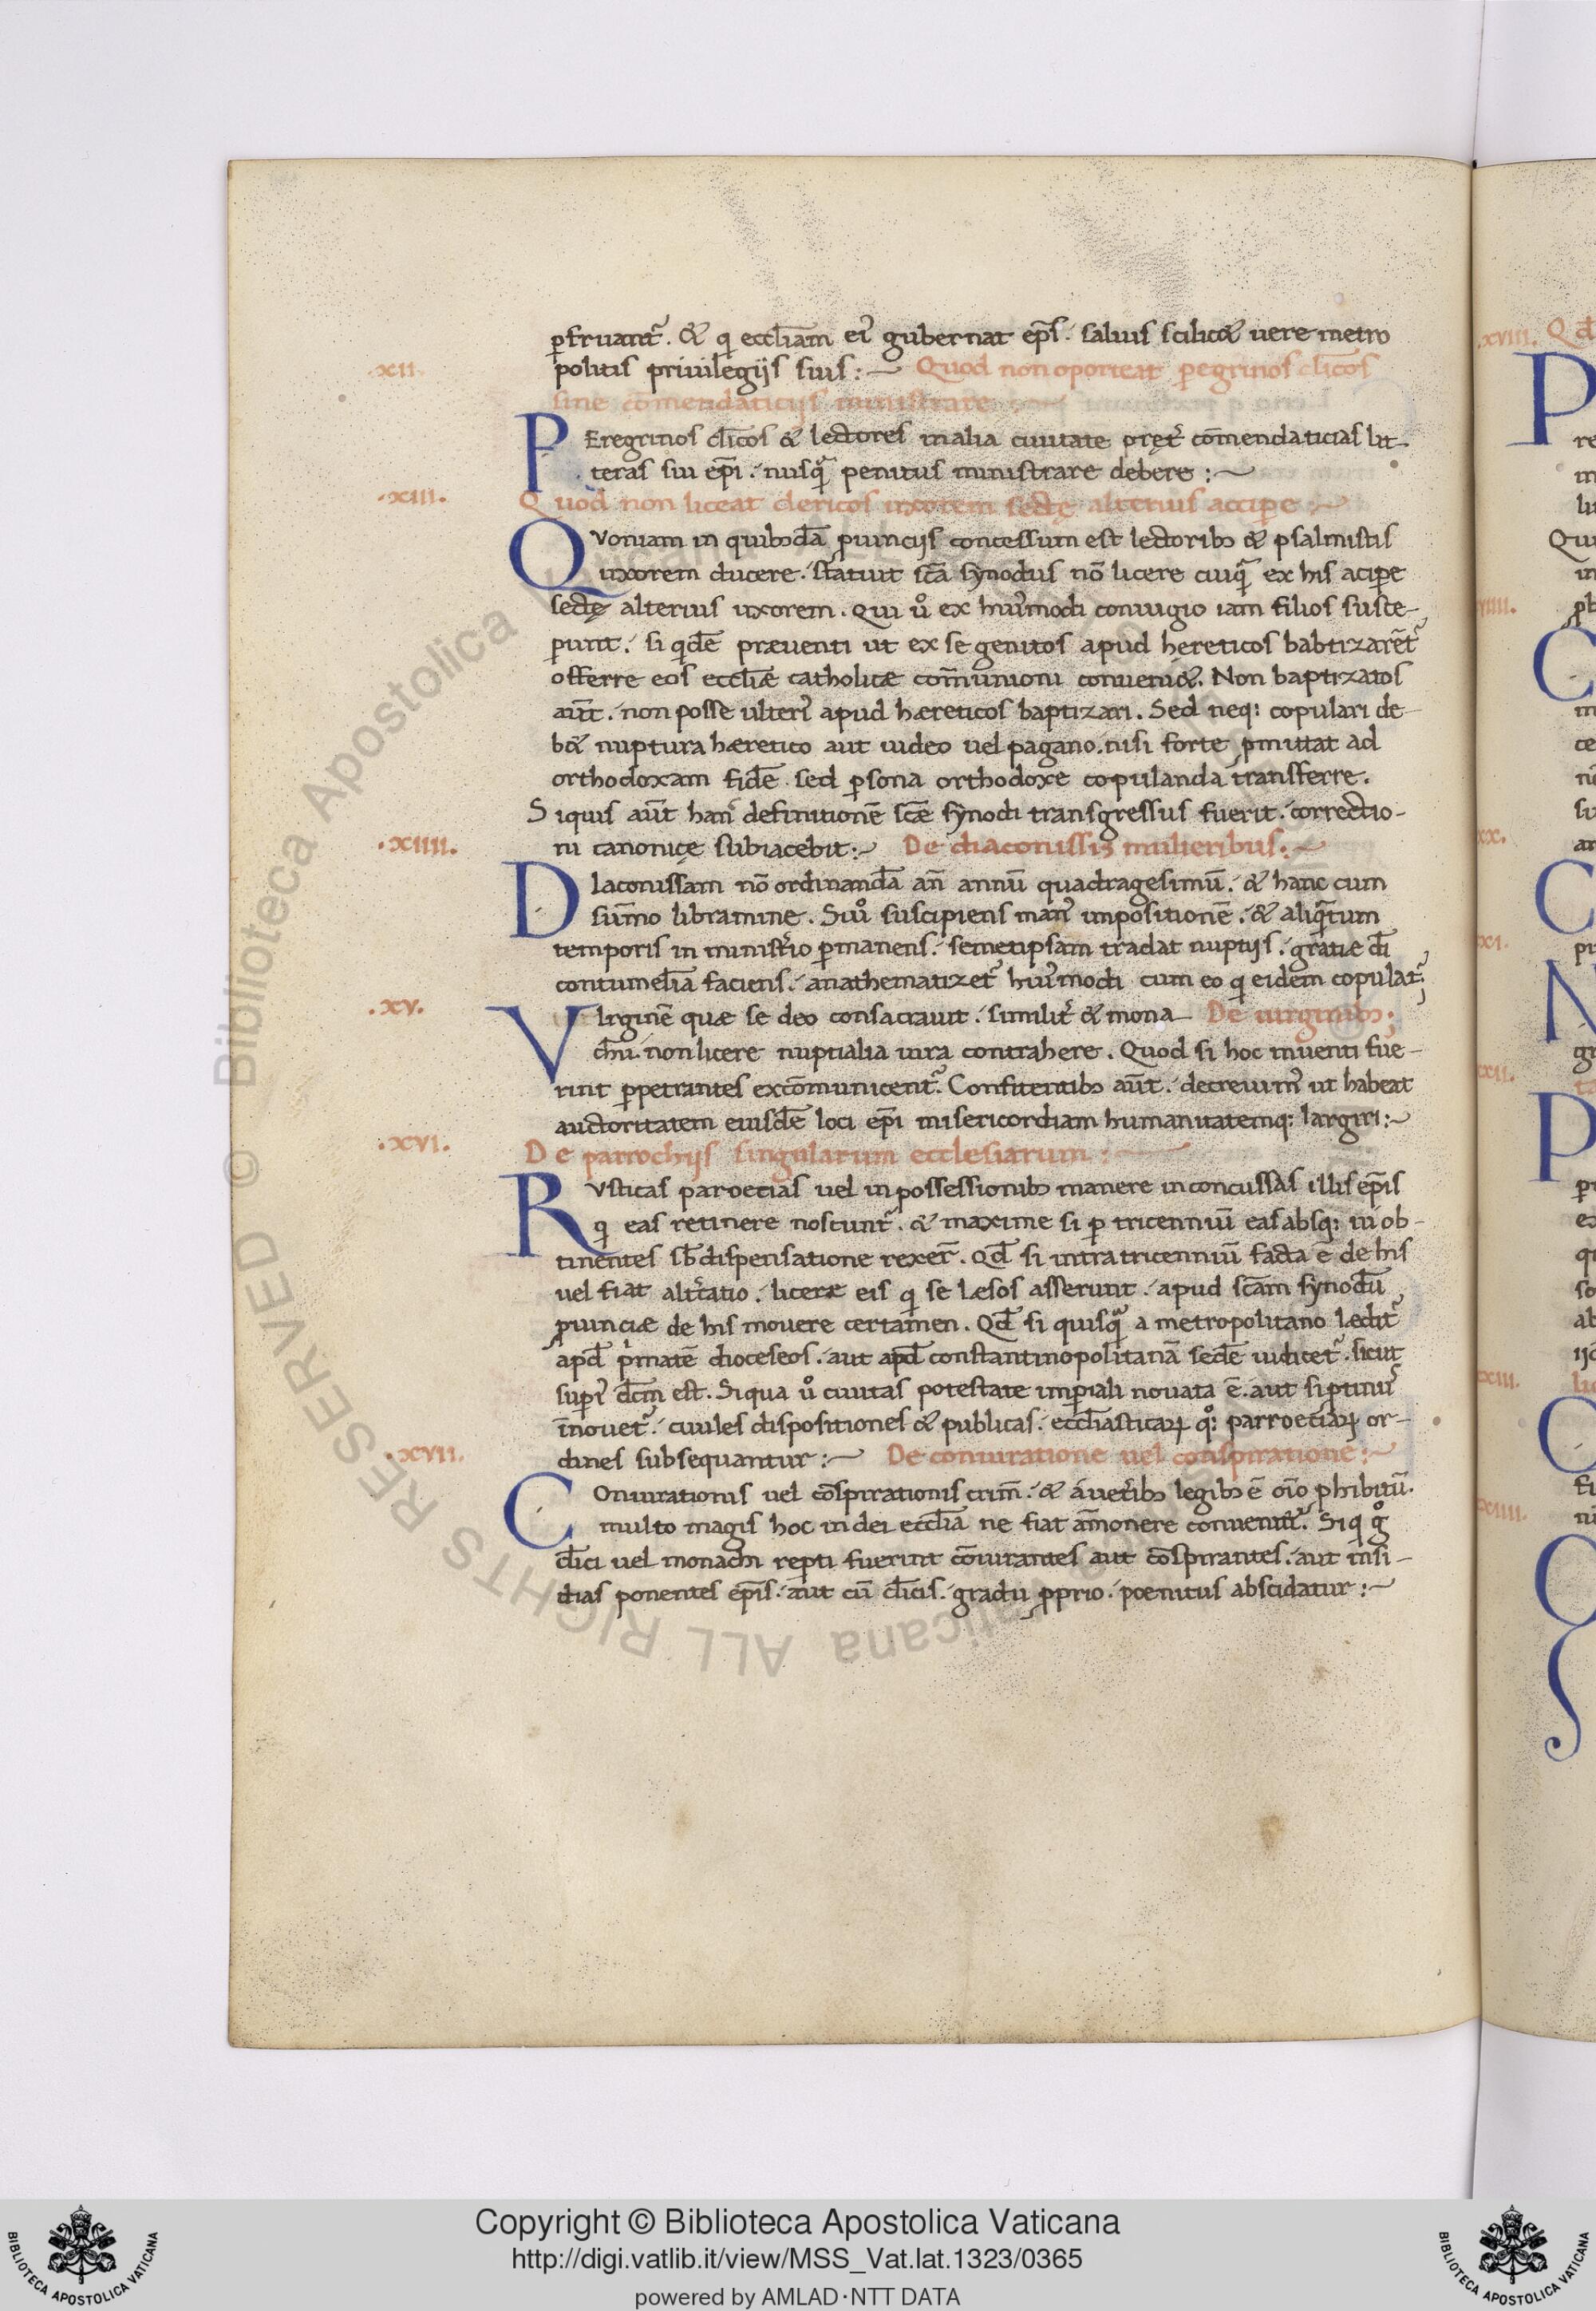 ꝑfruant᷑. & qͥ eccl̄iam eiꝰ gubernat ep̄s. saluis scilic& uere metro
politis priuilegijs suis:~ Quod non oporteat ꝑegrinos cl̄icos
.XII.
sine cōmendaticijs ministrare
PEregrinos cl̄icos & lectores in alia ciuitate pręt̾ cōmendaticias lit-
teras sui ep̄i. nusqᷓ penitus ministrare debere:~
.XIII.
Quod non liceat clericos uxorem sectę alterius accipe:~
QVoniam in quibꝰdā ꝓuincijs concessum est lectoribꝰ & psalmistis
uxorem ducere. statuit sc̄a synodus nō licere cuiqᷓ ex his acipe
sectę alterius uxorem. Qui uͦ ex huiꝰmodi coniugio iam filios susce-
ꝑunt. si qͥdē præuenti ut ex se genitos apud hereticos babtizarēt᷑
offerre eos eccl̄iæ catholicæ com̄unioni conueni&. Non baptizatos
aūt. non posse ulteriꝰ apud hæreticos baptizari. Sed neq: copulari de-
b& nuptura hæretico aut iudeo uel pagano. nisi forte ꝓmittat ad
orthodoxam fidē sed ꝑsona orthodoxe copulanda transferre.
Siquis aūt hanc definitionē sc̄æ synodi transgressus fuerit. correctio-
.XIIII.
ni canonicę subiacebit:~ De diaconissis mulieribus:~
DIaconissam nō ordinandā an̄ annū quadragesimū. & hanc cum
sum̄o libramine. Siuͦ suscipiens manꝰ impositionē. & aliqᷓtum
temporis in minist̾io ꝑmanens. semetipsam tradat nuptijs. gratiæ dī
contumeliā faciens. anathematizet᷑ huiꝰmodi cum eo qͥ eidem copulat᷑.
.XV.
VIrginē quæ se deo consacrauit. similit̾ & mona- De uirginibꝰ.
chū. non licere nuptialia iura contrahere. Quod si hoc inuenti fue-
rint ꝑpetrantes excōmunicent᷑. Confitentibꝰ aūt. decreuimꝰ ut habeat
auctoritatem eiusdē loci ep̄i misericordiam humanitatemq: largiri:~
.XVI.
De parrochijs singularum ecclesiarum:
RVsticas paroecias uel in possessionibꝰ manere inconcussas illis ep̄is
qͥ eas retinere noscunt᷑. & maxime si ꝑ tricenniū eas absq: ui ob-
tinentes sb̄ dispensatione rexer̄. Qd̄ si intra tricenniū facta ē de his
uel fiat alt̾catio. licere eis qͥ se læsos asserunt. apud scām synodū
ꝓuinciæ de his mouere certamen. Qd̄ si quisqᷓ a metropolitano lædit᷑
apd̄ pͥmatē dioceseos. aut apd̄ constantinopolitanā sedē iudicet᷑. sicut
supiꝰ dc̄m est. Siqua uͦ ciuitas potestate imꝑiali nouata ē. aut si ꝓtinꝰ
īnouet᷑. ciuiles dispositiones & publicas. eccl̄iasticaꝝ qͦ: parroeciaꝝ or-
.XVII.
dines subsequantur:~ De coniuratione uel conspiratione:~
COniurationis uel cōspirationis crim̄. & áuet̾ibꝰ legibꝰ ē oīo ꝓhibitū.
multo magis hoc in dei eccl̄ia ne fiat am̄onere conuenit. Si qͥ gͦ
cl̄ici uel monachi repti fuerint cōiurantes aut cōspirantes. aut insi-
dias ponentes ep̄is. aut cū cl̄icis. gradu ꝓprio. poenitus abscidatur:~
Copyright © Biblioteca Apostolica Vaticana
http://digi.vatlib.it/view/MSS_Vat.lat.1323/0365
powered by AMLAD·NTT DATA